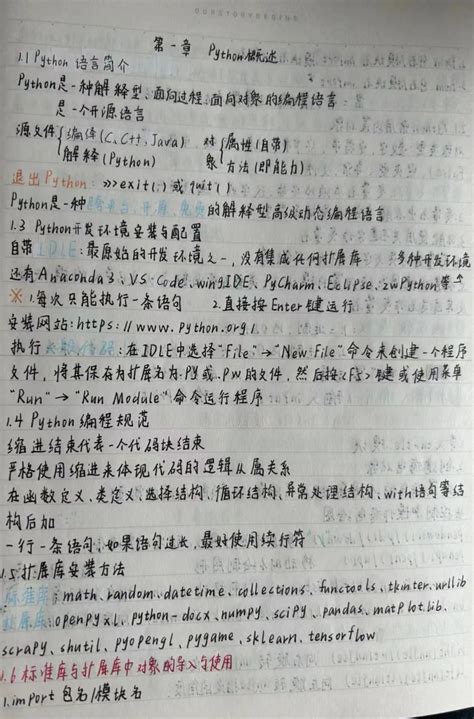 OURSTORYBEGINS
第一章 Python概述
1.1 Python 语言简介
Python是一种解释型、面向过程、面向对象的编程语言
是一个开源语言
源文件{编绎(C、C++、Java) 对{属性(自带)
解释(Python) 象 方法(即能力)
退出Python: >>>exit(;)或 quit()
Python是一种跨平台、开源、免费的解释型高级动态编程语言
1.3 Python开发环境安装与配置
自带IDLE:最原始的开发环境之一,没有集成任何扩展库
多种开发环境
还有Anaconda3、VS Code、wingIDE、PyCharm、Eclipse、zwPython等
※ 1.每次只能执行一条语句 2.直接按Enter键运行
安装网站:https://www.python.org/.
执行:在IDLE中选择"File"→"New File"命令来创建一个程序
文件,将其保存为扩展名为.PY或.PW的文件,然后按<F5>键或使用菜单
"Run"→"Run Module"命令运行程序
1.4 Python编程规范
缩进结束代表一个代码块结束
严格使用缩进来体现代码的逻辑从属关系
在函数定义、类定义、选择结构、循环结构、异常处理结构、with语句等结
构后加:
一行一条语句,如果语句过长,最好使用续行符
1.5扩展库安装方法
标准库:math、random、datetime、collections、functools、tkinter、urllib
扩展库:openpyxl、python-docx、numpy、scipy、pandas、matplotlib、
scrapy、shutil、pyopengl、pygame、sklearn、tensorflow
1.6 标准库与扩展库中对象的导入与使用
1.import 包名/模块名